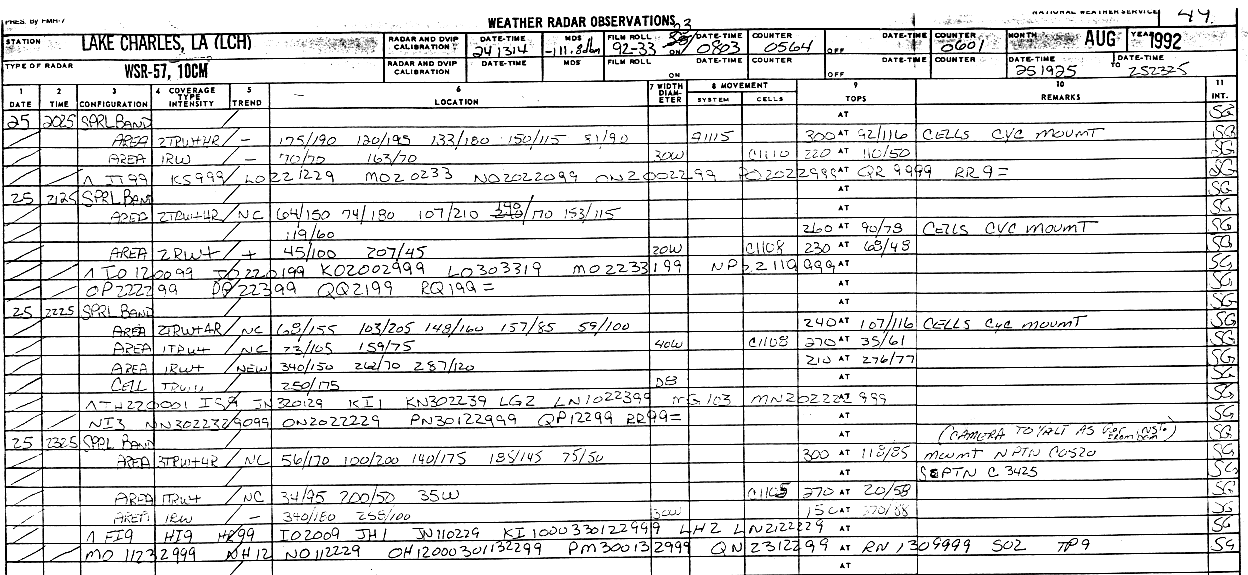 PRES. by FMH-7
WEATHER RADAR OBSERVATIONS
NATIONAL WEATHER SERVICE 44
STATION LAKE CHARLES, LA (LCH) RADAR AND DVIP CALIBRATION DATE-TIME 241314 MDS -111.8dbm FILM ROLL 92-33 ON DATE-TIME 0803 COUNTER 0564 OFF DATE-TIME COUNTER 0601 MONTH AUG YEAR 1992
TYPE OF RADAR WSR-57, 10CM RADAR AND DVIP CALIBRATION DATE-TIME MDS FILM ROLL ON DATE-TIME COUNTER OFF DATE-TIME COUNTER DATE-TIME 251925 TO DATE-TIME 252325
1 DATE 2 TIME 3 CONFIGURATION 4 COVERAGE TYPE INTENSITY 5 TREND 6 LOCATION 7 WIDTH DIAMETER 8 MOVEMENT SYSTEM CELLS 9 TOPS 10 REMARKS 11 INT.
25 2025 SPRL BAND AT SG
AREA 2TRW++R/ - 175/190 130/195 133/180 150/115 51/90 9115 300 AT 92/116 CELLS CYC MOUMT SG
AREA 1RW - 70/70 163/70 30W C1110 220 AT 110/50 SG
^ JJ99 KS999 LO221229 MO20233 NO2022099 ON2002299 AT QR9999 RR9= SG
25 2125 SPRL BAND AT SG
AREA 2TRW++R/ NC 64/150 74/180 107/210 153/115 AT SG
119/60 260 AT 90/78 CELLS CYC MOUMT SG
AREA 2RW+ + 45/100 207/45 20W C1108 230 AT 68/48 SG
^ IO120099 JO220199 KO2002999 LO303319 MO2233199 AT SG
OP222299 PP22399 QQ2199 RQ199= AT SG
25 2225 SPRL BAND AT SG
AREA 2TRW++R/ NC 68/155 103/205 148/160 157/85 59/100 240 AT 107/116 CELLS CYC MOUMT SG
AREA 1TRW+ NC 73/105 159/75 40W C1108 270 AT 35/61 SG
AREA 1RW+ NEW 340/150 262/70 287/120 210 AT 276/77 SG
CELL 250/175 D8 AT SG
^ IS9 JN320129 KI1 KN302239 LG2 LN1022399 MG103 AT SG
NI3 NN3022329099 ON2022229 PN30122999 QP12299 RR99= AT SG
25 2325 SPRL BAND AT SG
AREA 3TRW++R/ NC 56/170 100/200 140/175 185/145 75/50 300 AT 118/85 MOUMT NPTN C0520 SG
AT SEPTN C 3425 SG
AREA 1TRW+ NC 34/95 200/50 35W C1105 270 AT 20/58 SG
AREA 1RW - 340/180 258/100 30W AT SG
^ FI9 HI9 IO2009 JH1 JN110229 KI1000330122999 LH2 LN2122229 AT SG
MO11232999 NH12 NO112229 OH12000301132299 PM300132999 QN2312299 AT RN1309999 SO2 TP9 SG
AT